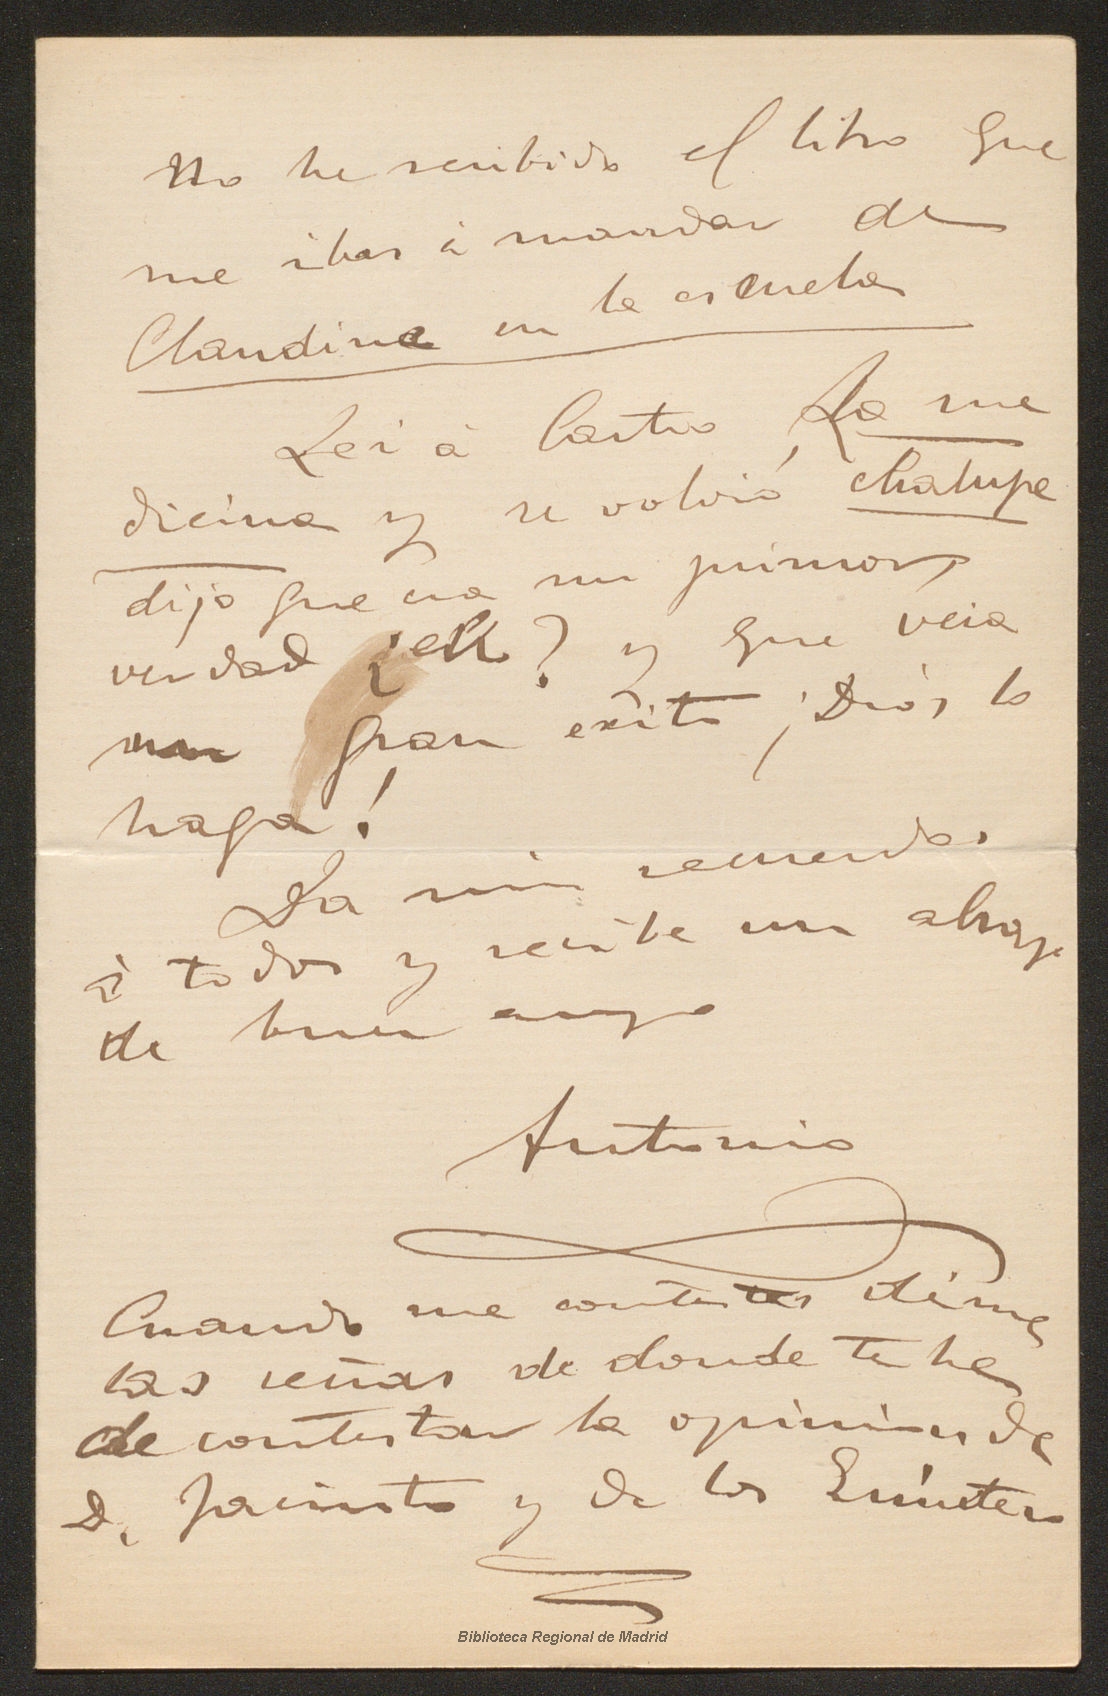 No he recibido el libro que
me ibas á mandar de
Claudina en la escuela
Lei á Castro La me
dicina y se volvió chalupe
dijo que era un primor,
verdad ¿eh? y que veia
un gran exito ¡Dios lo
haga!
Da mis recuerdos
á todos y recibe un abrazo
de buen amigo
Antonio
Cuando me contestes dime
las señas de donde te he
de contestar la opinion de
D. Jacinto y de los
Biblioteca Regional de Madrid